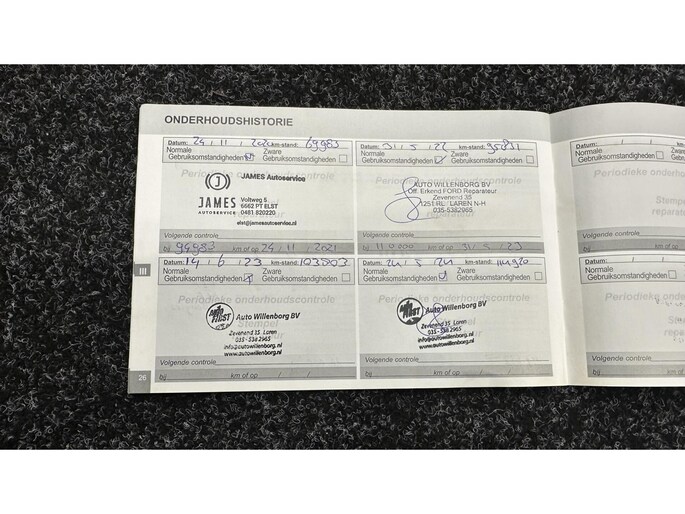 ONDERHOUDSHISTORIE
Datum: 24 / 11 / 2020 km-stand: 69983
Normale Zware
Gebruiksomstandigheden Gebruiksomstandigheden
Periodieke onderhoudscontrole
JAMES Autoservice
JAMES
AUTOSERVICE
Voltweg 5
6662 PT ELST
0481 820220
elst@jamesautoservice.nl
Volgende controle
bij 94983 km of op 24 / 11 / 2021
Datum: 31 / 5 / 22 km-stand: 95831
Normale Zware
Gebruiksomstandigheden Gebruiksomstandigheden
Periodieke onderhoudscontrole
AUTO WILLENBORG BV
Off. Erkend FORD Reparateur
Zevenend 35
1251 RL LAREN N-H
035-5382965
Volgende controle
bij 110.000 km of op 31 / 5 / 23
Datum: 14 / 6 / 23 km-stand: 103803
Normale Zware
Gebruiksomstandigheden Gebruiksomstandigheden
Periodieke onderhoudscontrole
Stempel
AUTO FIRST
Auto Willenborg BV
Zevenend 35 Laren
035-538 2965
info@autowillenborg.nl
www.autowillenborg.nl
Volgende controle
bij km of op / /
Datum: 24 / 5 / 24 km-stand:
Normale Zware
Gebruiksomstandigheden Gebruiksomstandigheden
Periodieke onderhoudscontrole
Auto Willenborg BV
Zevenend 35 Laren
035-538 2965
info@autowillenborg.nl
www.autowillenborg.nl
Volgende controle
bij km of op / /
III
26
Datum:
Normale
Gebruiksom
Periodieke on
Stem
repara
Volgende controle
bij
Datum:
Normale
Gebruiksom
Periodieke on
Stemp
repa
Volgende controle
bij